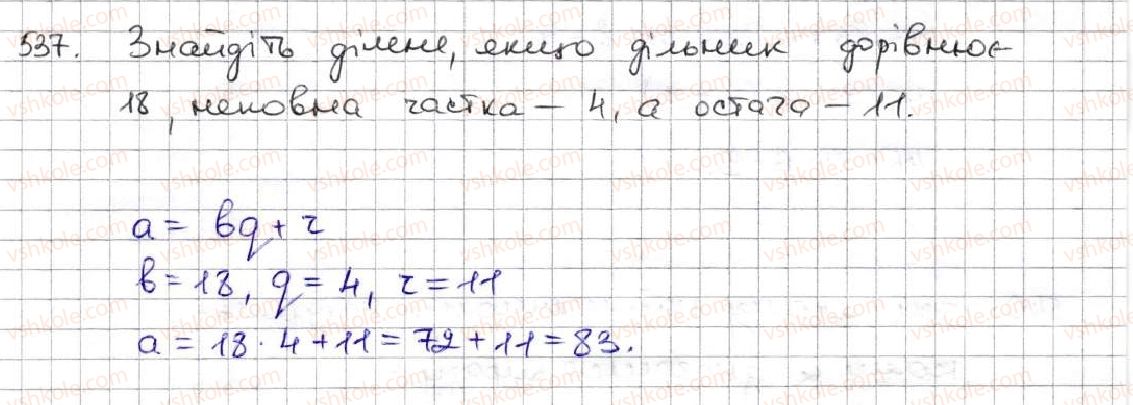 537. Знайдіть ділене, якщо дільник дорівнює
18, неповна частка – 4, а остача – 11.
a = bq + r
b = 18, q = 4, r = 11
a = 18 · 4 + 11 = 72 + 11 = 83.